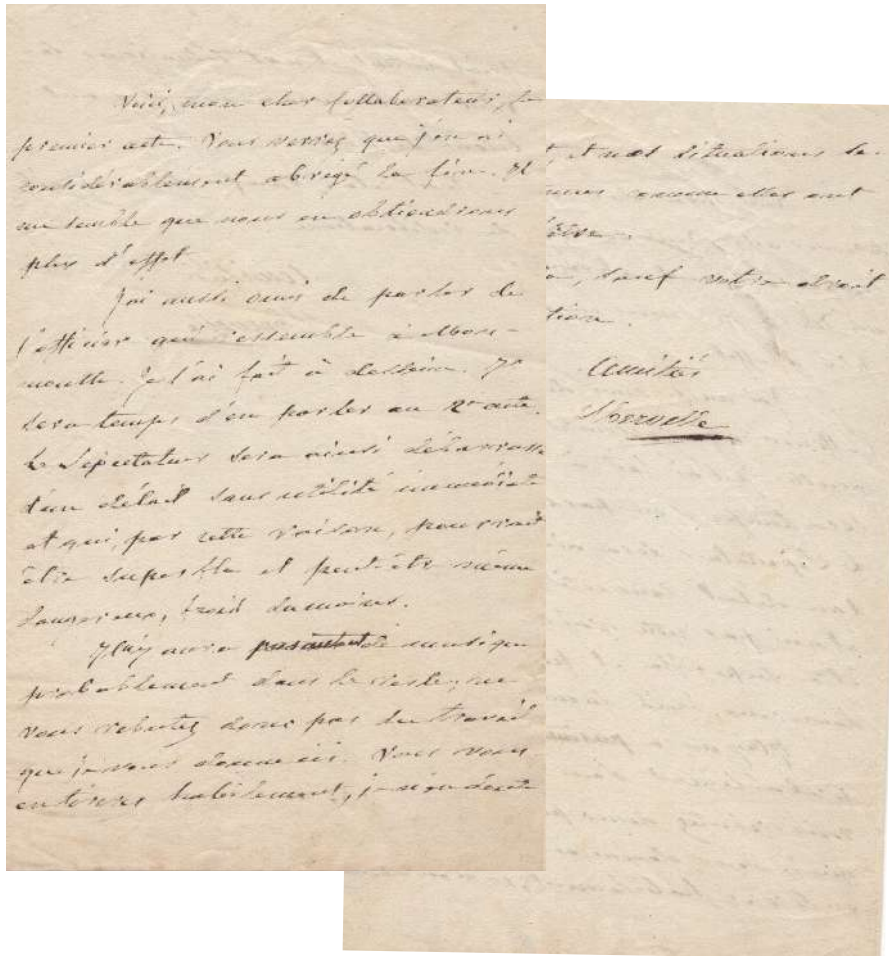 Voici, mon cher collaborateur, le
premier acte. Vous verrez que j'en ai
considérablement abrégé la fin. Il
me semble que nous en obtiendrons
plus d'effet
J'ai aussi omis de parler de
l'officier qui ressemble à
Je l'ai fait à dessein. Il
sera temps d'en parler au 2e acte.
Le Spectateur sera ainsi débarrassé
d'un détail sans utilité immédiate
et qui, par cette raison, pourrait
être superflu et peut-être même
dangereux, froid du moins.
Il n'y aura de musique
probablement dans le reste, ne
vous rebutez donc pas du travail
que je vous donne ici. Vous vous
en tirerez habilement, je n'en doute
et nos situations se
comme elles ont
être.
sauf votre droit
tion.
Amitiés